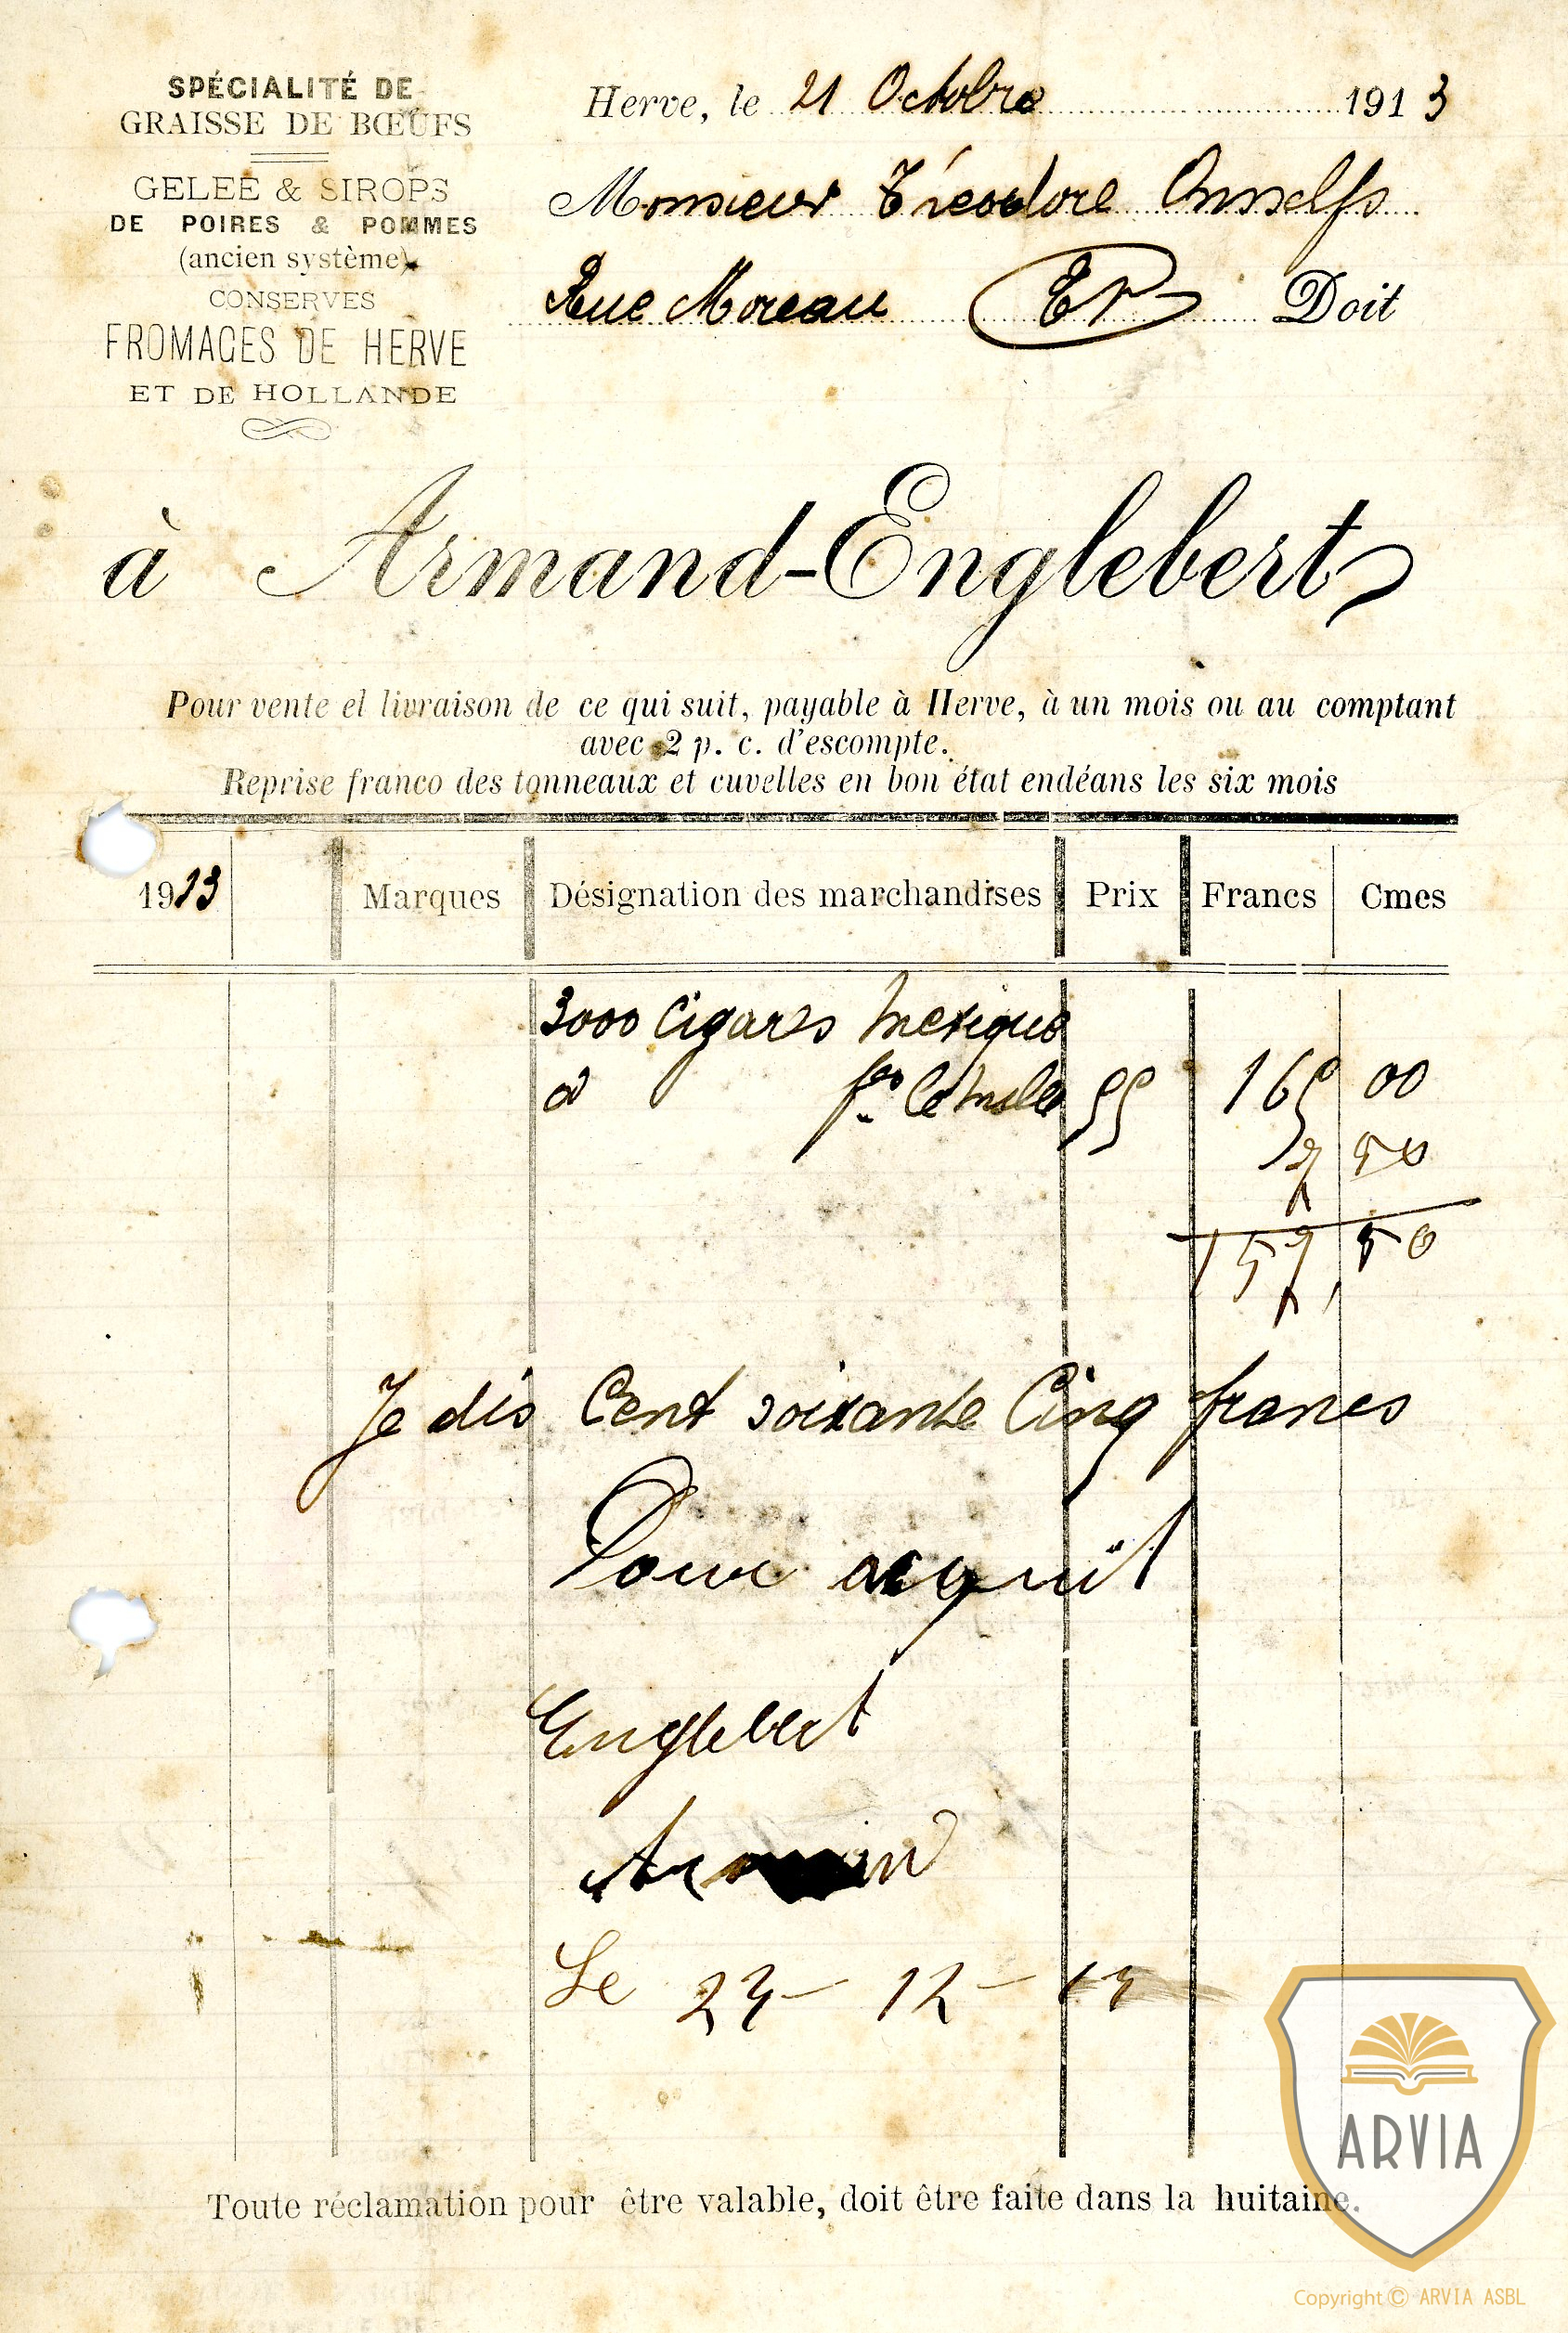 SPÉCIALITÉ DE
GRAISSE DE BŒUFS
GELEE & SIROPS
DE POIRES & POMMES
(ancien système)
CONSERVES
FROMAGES DE HERVE
ET DE HOLLANDE
Herve, le 21 Octobre 1913
Monsieur
Rue Moreau Doit
à Armand-Englebert
Pour vente et livraison de ce qui suit, payable à Herve, à un mois ou au comptant
avec 2 p. c. d'escompte.
Reprise franco des tonneaux et cuvelles en bon état endéans les six mois
1913 Marques Désignation des marchandises Prix Francs Cmes
3000 Cigares Mexique
à frs le mille 55 165 00
7 50
157,50
Je dis Cent soixante Cinq francs
Pour acquit
Englebert
Le 23-12-13
Toute réclamation pour être valable, doit être faite dans la huitaine.
ARVIA
Copyright © ARVIA ASBL